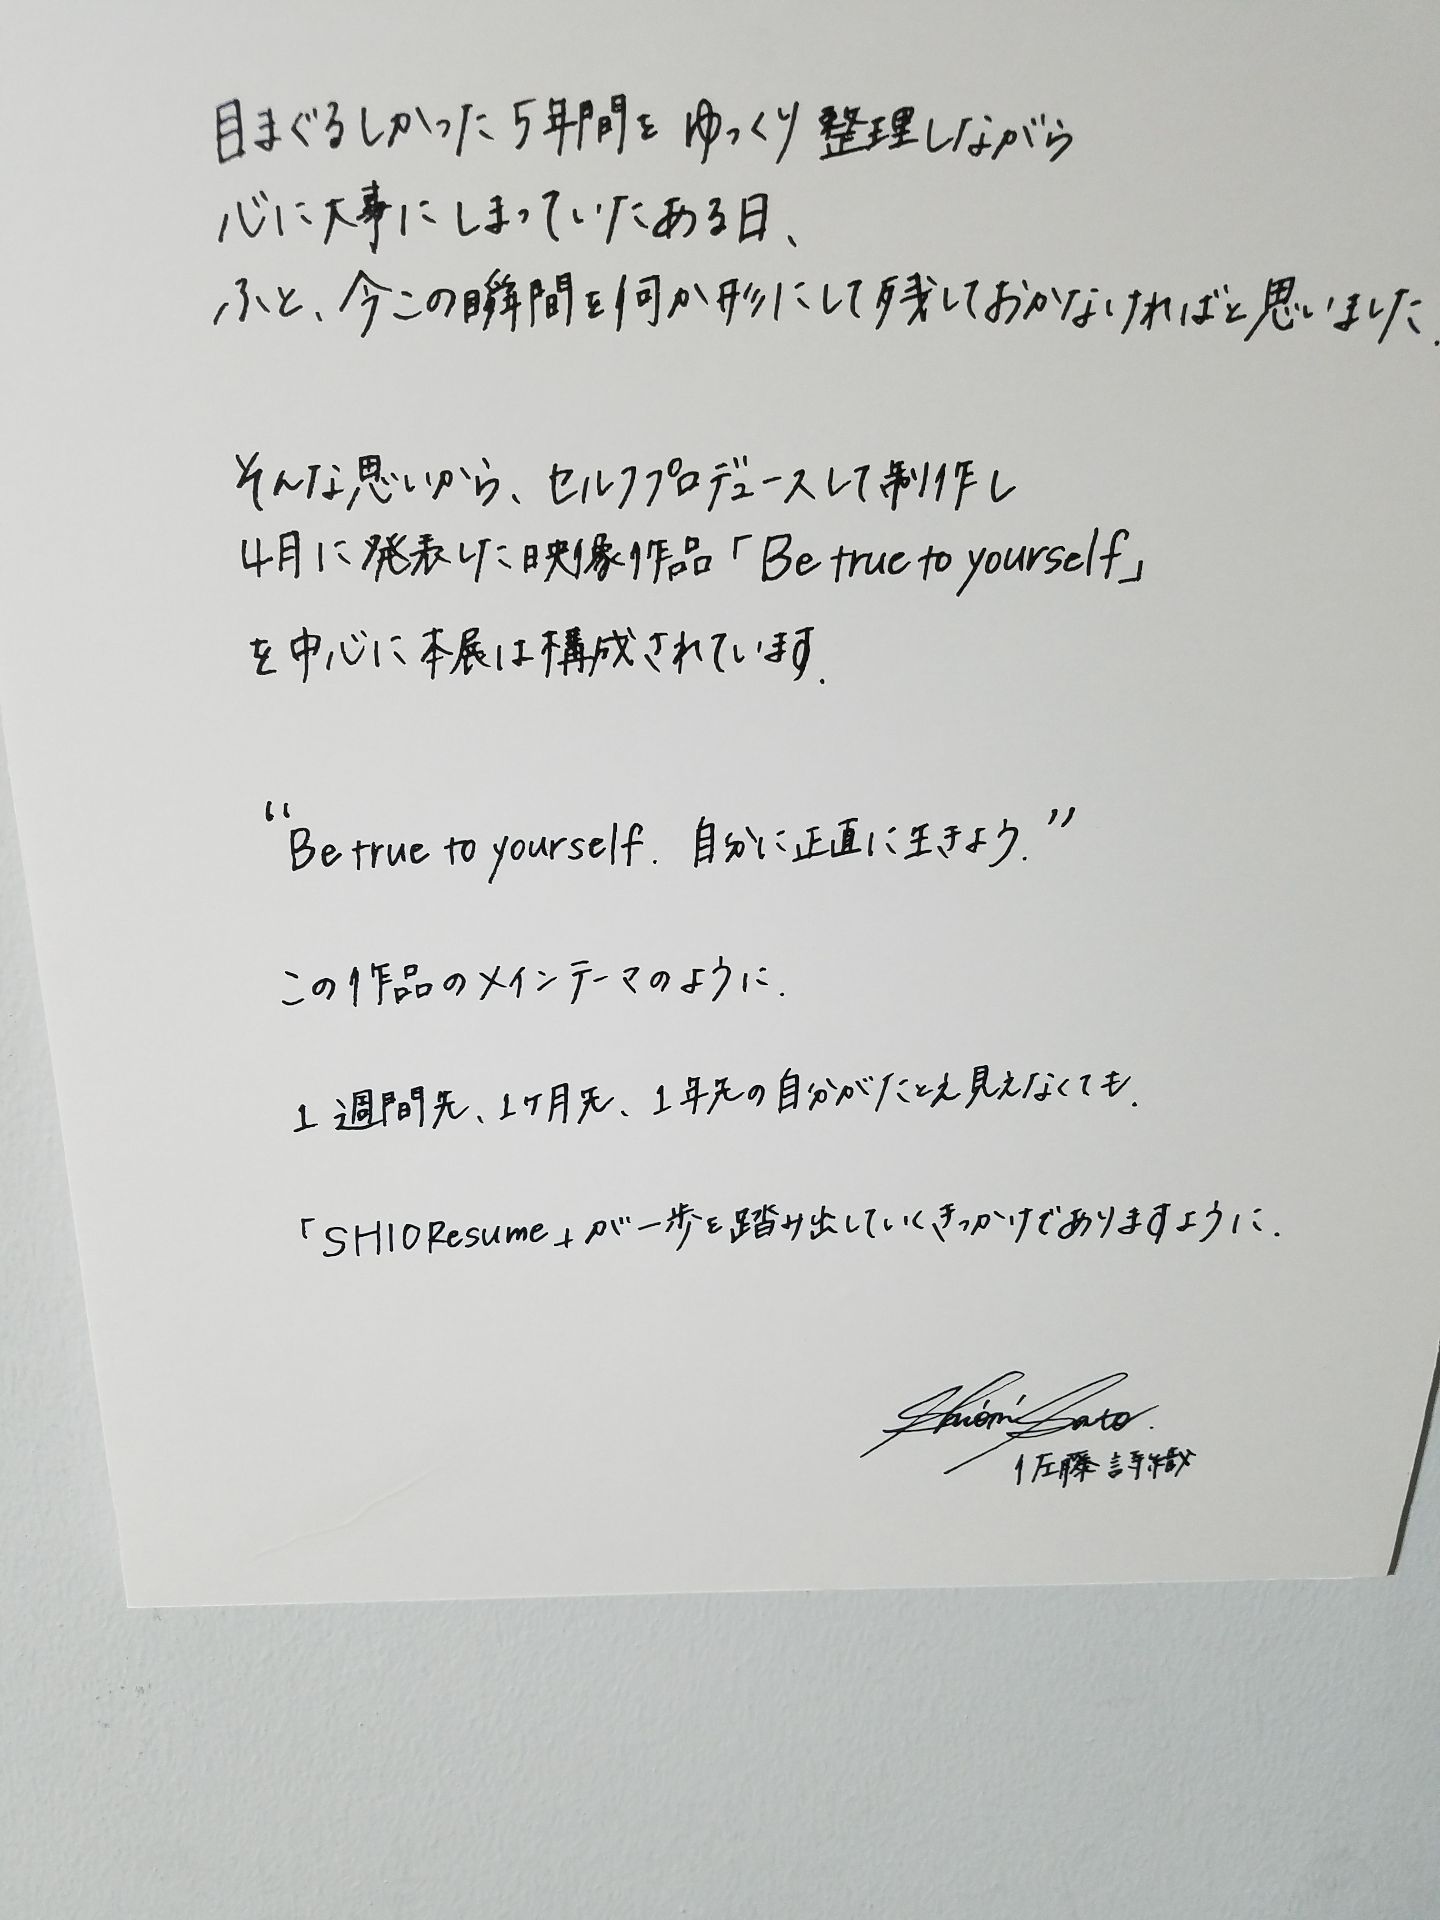 目まぐるしかった5年間をゆっくり整理しながら
心に大事にしまっていたある日、
ふと、今この瞬間を何か形にして残しておかなければと思いました.
そんな思いから、セルフプロデュースして制作し
4月に発表した映像作品「Be true to yourself」
を中心に本展は構成されています.
“Be true to yourself. 自分に正直に生きよう.”
この作品のメインテーマのように.
1週間先、1ヶ月先、1年先の自分がたとえ見えなくても.
「SHIOResume」が一歩を踏み出していくきっかけでありますように.
Shiori Sato.
佐藤詩織